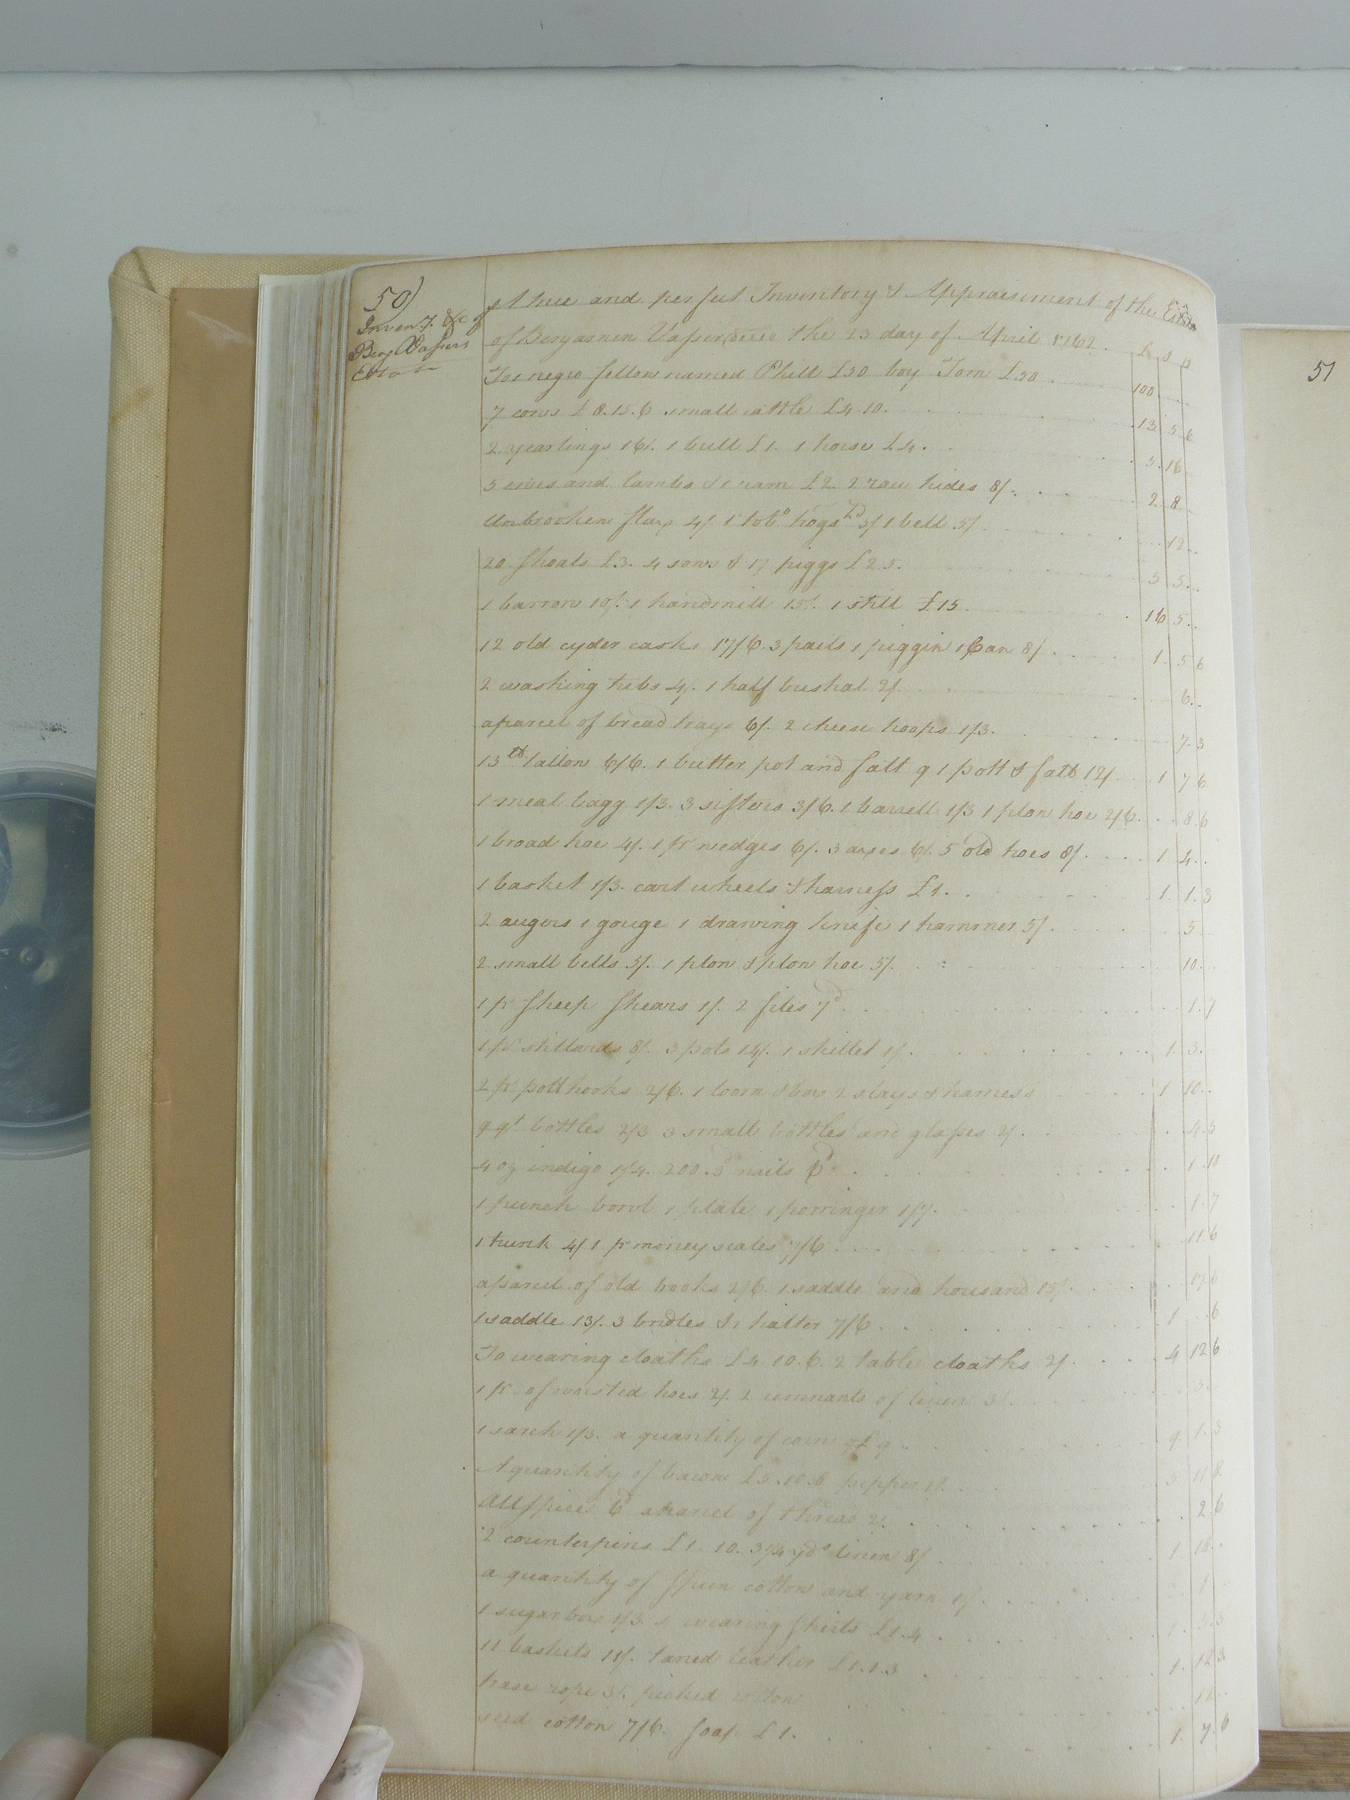 50)
Inven.y &c of
Benj Vassers
Estate
A true and perfect Inventory & Appraisement of the Estate
of Benjamin Vasser dec'd the 23 day of April 1762.
£ S D
To 1 negro fellow named Phill £50 boy Tom £50 100
7 cows £8.15.6 small cattle £4.10. 13 5 6
2 yearlings 16/. 1 bull £1. 1 horse £4. 5 16
5 ewes and lambs & 1 ram £2. 2 raw hides 8/. 2 8
Unbrooken flax 4/ 1 tob.o hogs.d 3/ 1 bell 5/ 12
20 shoats £3. 4 sows & 17 piggs £2 5. 5 5
1 barrow 10/. 1 handmill 15/. 1 still £15. 16 5
12 old cyder casks 17/6. 3 pails 1 piggin 1 Can 8/. 1. 5 6
2 washing tubs 4/. 1 half bushal 2/. 6
a parcel of bread trays 6/. 2 cheese hoops 1/3. 7. 3
13 tb tallow 6/6. 1 butter pot and salt 9 1 pott & fatt 12/ 1 7 6
1 meal bagg 1/3. 3 sifters 3/6. 1 barrell 1/3 1 plow hoe 2/6. 8 6
1 broad hoe 4/. 1 pr wedges 6/. 3 axes 6/. 5 old hoes 8/. 1 4
1 basket 1/3. cart wheels & harness £1. 1. 1. 3
2 augers 1 gouge 1 drawing knife 1 hammer 5/. 5
2 small bells 5/. 1 plow & plow hoe 5/. 10
1 pr sheep shears 1/. 2 files 7d 1. 7
1 pr stillards 8/. 3 pots 14/. 1 skillet 1/. 1. 3.
2 pr potthooks 2/6. 1 loom & box 2 slays & harness 1 10
9 qt bottles 2/3 3 small bottles and glasses 2/. 4 3
4 oz indigo 1/4. 200. 3d nails 6d. 1. 10
1 punch bowl 1 plate 1 porringer 1/7. 1. 7
1 trunk 4/ 1 pr money scales 7/6 11 6
a parcel of old books 2/6. 1 saddle and housand 15/. 17 6
1 saddle 13/. 3 bridles & 1 halter 7/6 1 6
To wearing cloaths £4. 10. 6. 2 table cloaths 2/. 4 12 6
1 pr of worsted hoes 2/. 2 remnants of linen 3/.
1 sarch 1/3. a quantity of corn £9. 9. 1. 3
A quantity of bacon £5.10.6 pepper
Allspice 6d a parcel of thread 2/. 2 6
2 counterpins £1. 10. 3 3/4 yds linen 8/. 1 18
a quantity of spun cotton and yarn 1/. 1
1 sugar box 1/3. 4 wearing shirts £1.4
11 baskets 11/. taned leather £1.1.3 1. 12 3
trase rope 3/. picked cotton
seed cotton 7/6. soap £1. 1. 7. 6
51